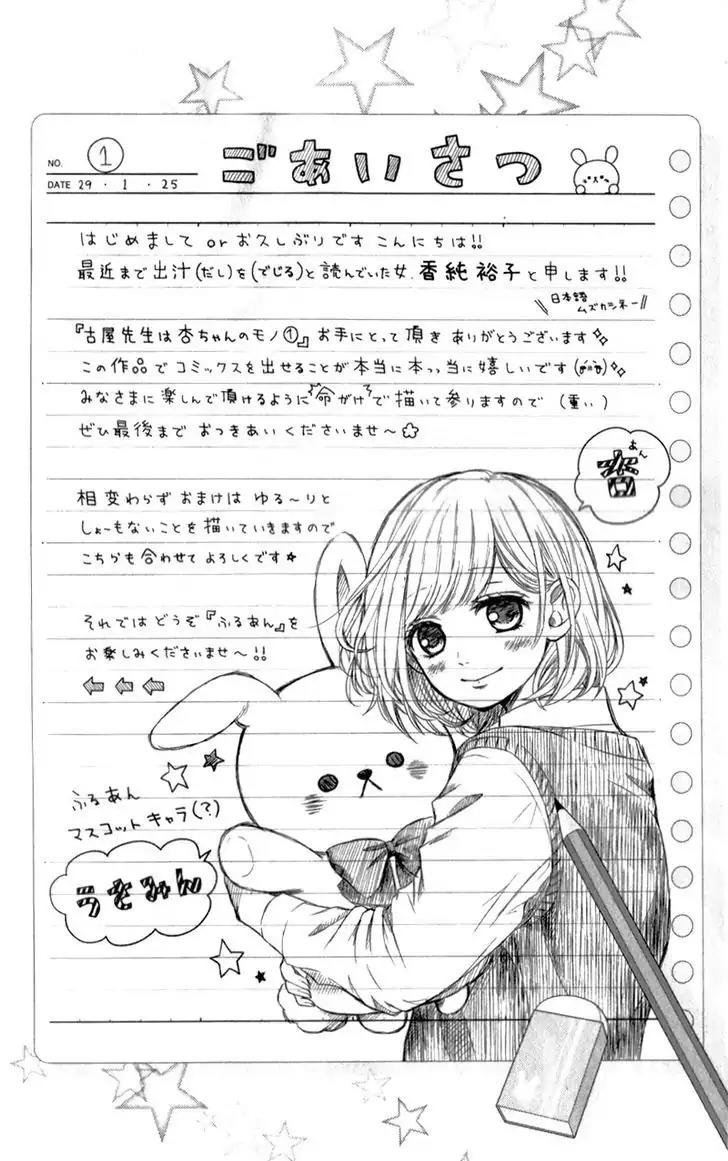 NO. ①
ごあいさつ
DATE 29・1・25
はじめまして or お久しぶりです こんにちは!!
最近まで出汁(だし)を(でじる)と読んでいた女、香純裕子と申します!!
\\日本語ムズカシネー//
『古屋先生は杏ちゃんのモノ①』お手にとって頂き ありがとうございます
この作品でコミックスを出せることが本当に本っっ当に嬉しいです
みなさまに楽しんで頂けるように命がけで描いて参りますので (重い)
ぜひ最後まで おつきあいくださいませ〜
杏
あん
相変わらず おまけは ゆる〜りと
しょーもないことを描いていきますので
こちらも合わせて よろしくです☆
それでは どうぞ『ふるあん』を
お楽しみくださいませ〜!!
⇦ ⇦ ⇦
ふるあん
マスコットキャラ(?)
うさみん